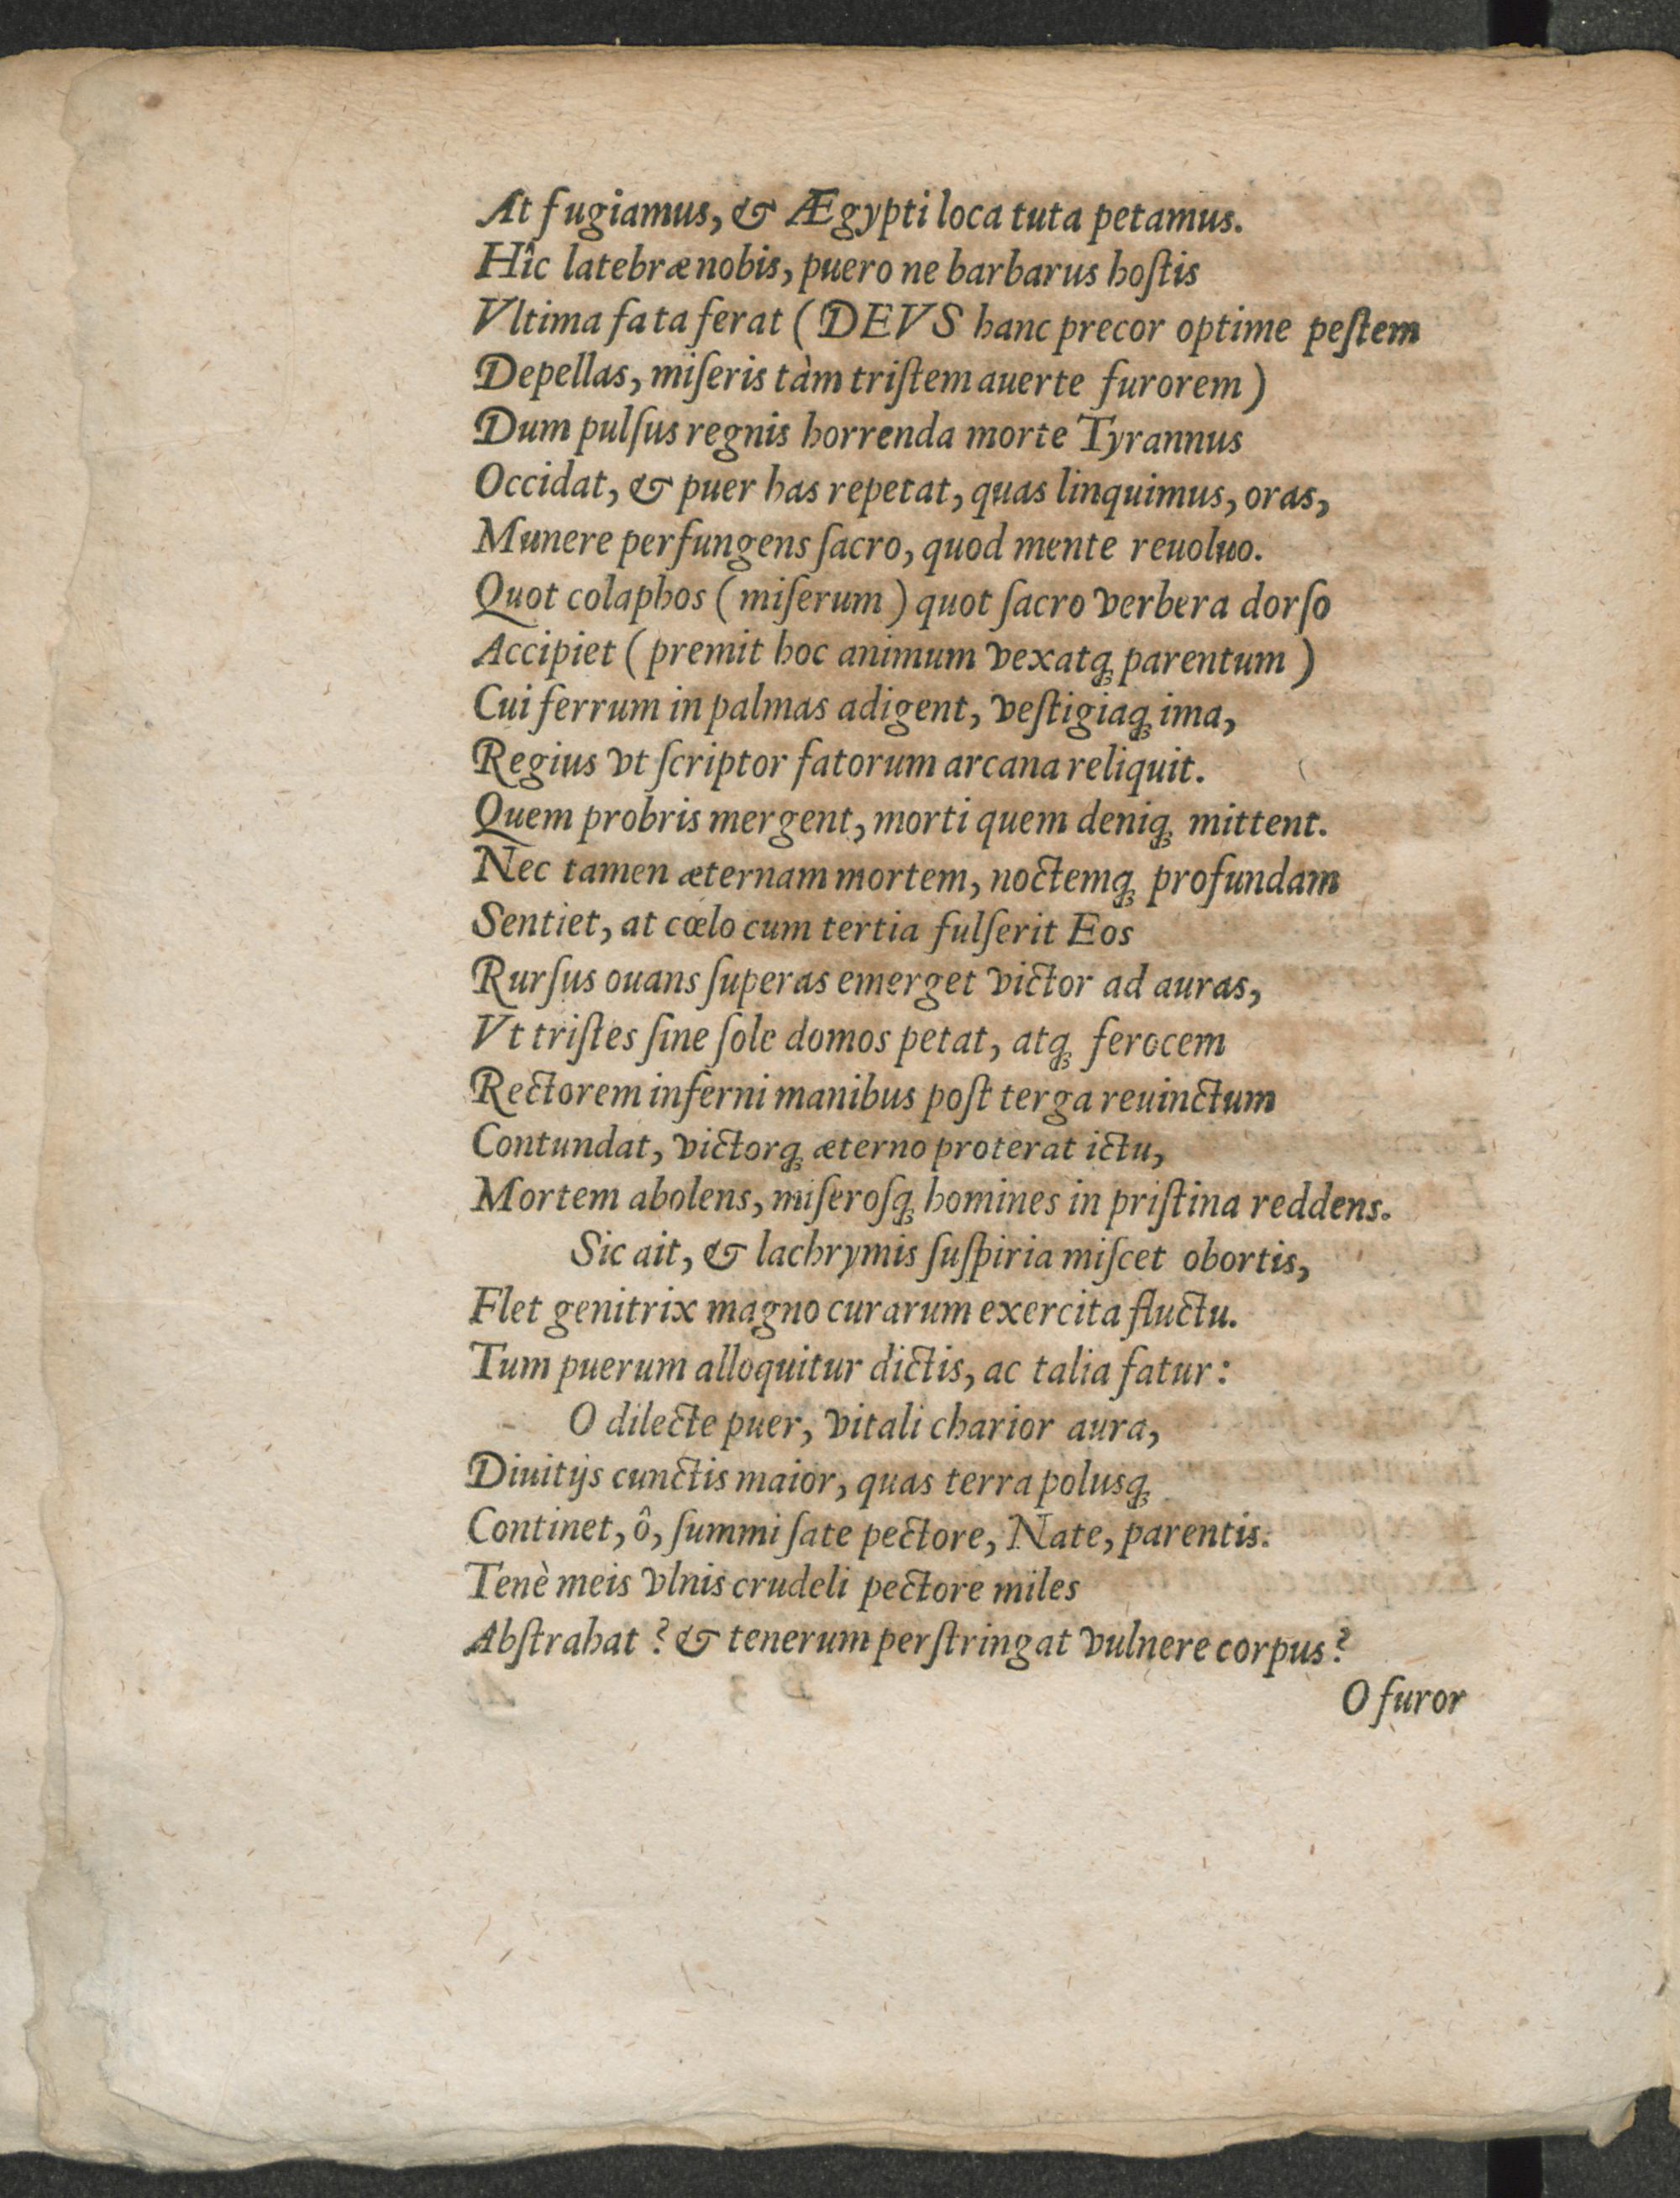 At fugiamus, & Ægypti loca tuta petamus.
Hîc latebræ nobis, puero ne barbarus hoſtis
Vltima fata ferat (DEVS hanc precor optime peſtem
Depellas, miſeris tàm triſtem auerte furorem)
Dum pulſus regnis horrenda morte Tyrannus
Occidat, & puer has repetat, quas linquimus, oras,
Munere perfungens ſacro, quod mente reuoluo.
Quot colaphos (miſerum) quot ſacro verbera dorſo
Accipiet (premit hoc animum vexatq́ꝫ parentum)
Cui ferrum in palmas adigent, veſtigiaqꝫ ima,
Regius vt ſcriptor fatorum arcana reliquit.
Quem probris mergent, morti quem deniqꝫ mittent.
Nec tamen æternam mortem, noctemqꝫ profundam
Sentiet, at cœlo cum tertia fulſerit Eos
Rurſus ouans ſuperas emerget victor ad auras,
Vt triſtes ſine ſole domos petat, atqꝫ ferocem
Rectorem inferni manibus poſt terga reuinctum
Contundat, victorqꝫ æterno proterat ictu,
Mortem abolens, miſeroſqꝫ homines in priſtina reddens.
Sic ait, & lachrymis ſuſpiria miſcet obortis,
Flet genitrix magno curarum exercita fluctu.
Tum puerum alloquitur dictis, ac talia fatur:
O dilecte puer, vitali charior aura,
Diuitijs cunctis maior, quas terra polusqꝫ
Continet, ô, ſummi ſate pectore, Nate, parentis.
Tenè meis vlnis crudeli pectore miles
Abſtrahat? & tenerum perſtringat vulnere corpus?
O furor